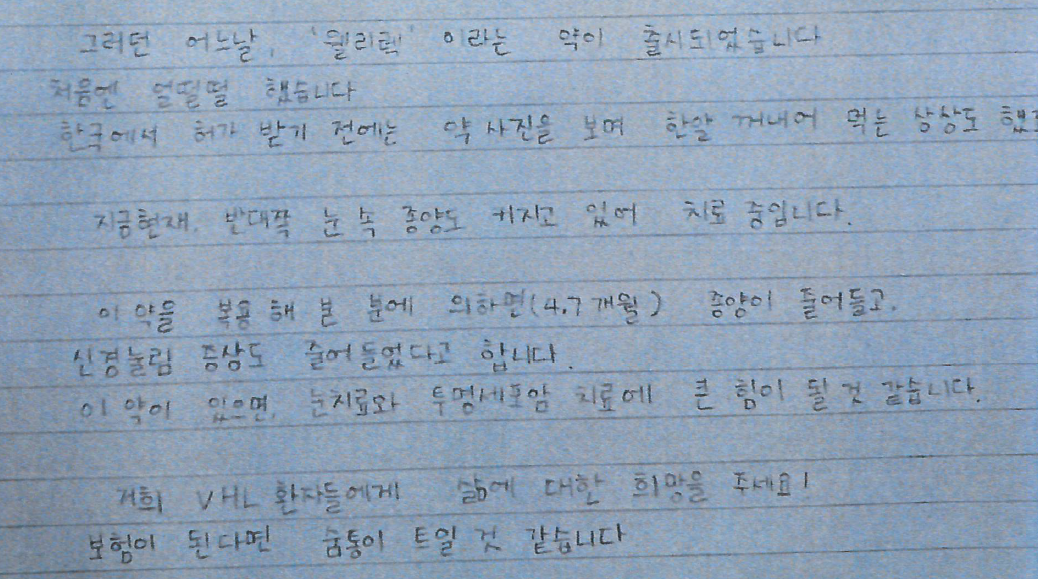 그러던 어느날, '웰리렉' 이라는 약이 출시되었습니다
처음엔 얼떨떨 했습니다
한국에서 허가 받기 전에는 약 사진을 보며 한알 꺼내어 먹는 상상도 했
지금현재, 반대쪽 눈 속 종양도 커지고 있어 치료 중입니다.
이 약을 복용 해 본 분에 의하면(4.7개월) 종양이 줄어들고,
신경눌림 증상도 줄어 들었다고 합니다.
이 약이 있으면, 눈치료와 투명세포암 치료에 큰 힘이 될 것 같습니다.
저희 VHL 환자들에게 삶에 대한 희망을 주세요!
보험이 된다면 숨통이 트일 것 같습니다